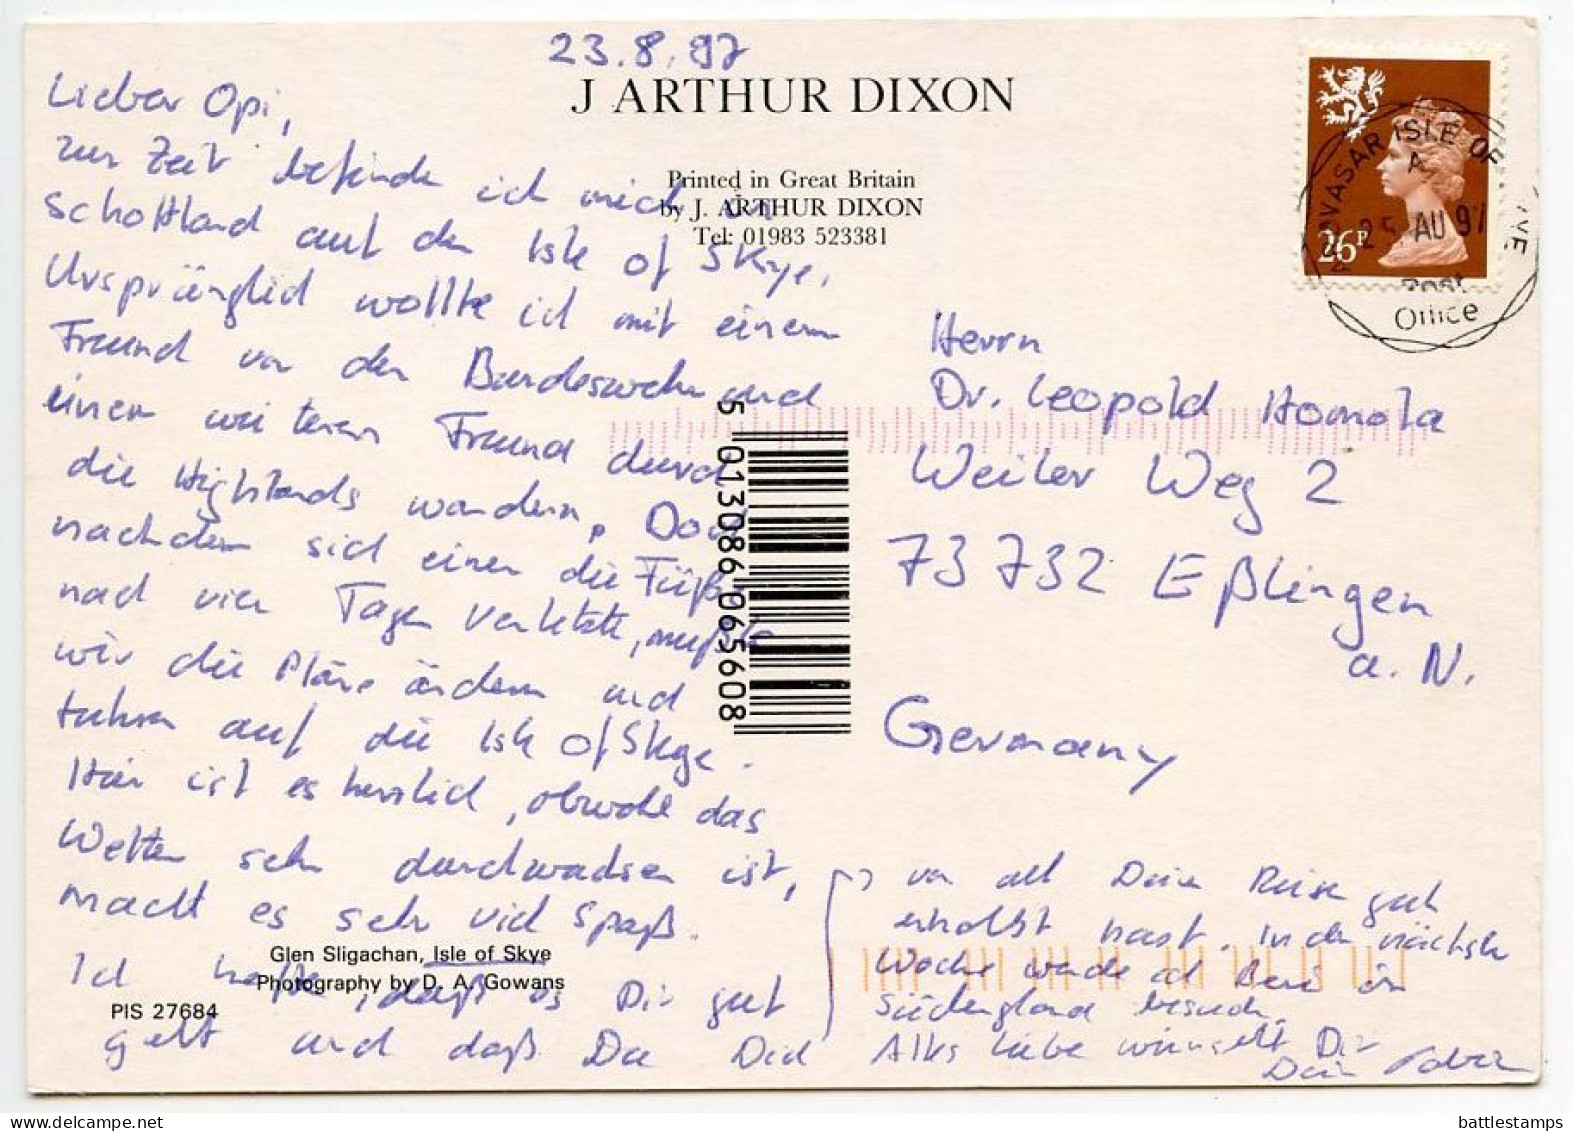 23.8.97
J ARTHUR DIXON
Printed in Great Britain
by J. ARTHUR DIXON
Tel: 01983 523381
Lieber Opi,
zur Zeit befinde ich mich in
Schottland auf der Isle of Skye.
Ursprünglich wollte ich mit einem
Freund von der Bundeswehr und
einem weiteren Freund durch
die Highlands wandern. Doch
nachdem sich einer die Füße
nach vier Tagen verletzte, mußten
wir die Pläne ändern und
fuhren auf die Isle of Skye.
Hier ist es herrlich, obwohl das
Wetter sehr durchwachsen ist,
macht es sehr viel Spaß.
Ich hoffe, daß es Dir gut
geht und daß Du Dich
von all Deiner Reise gut
erholt hast. In der nächsten
Woche werde ich in
Südengland besuchen.
Alles Liebe wünscht Dir
Dein
Glen Sligachan, Isle of Skye
Photography by D. A. Gowans
PIS 27684
5 013086 065608
26P
ARDVASAR ISLE OF SKYE
A
25 AU 97
Post
Office
Herrn
Dr. Leopold Homola
Weiler Weg 2
73732 Eßlingen
a. N.
Germany
www.delcampe.net
battlestamps